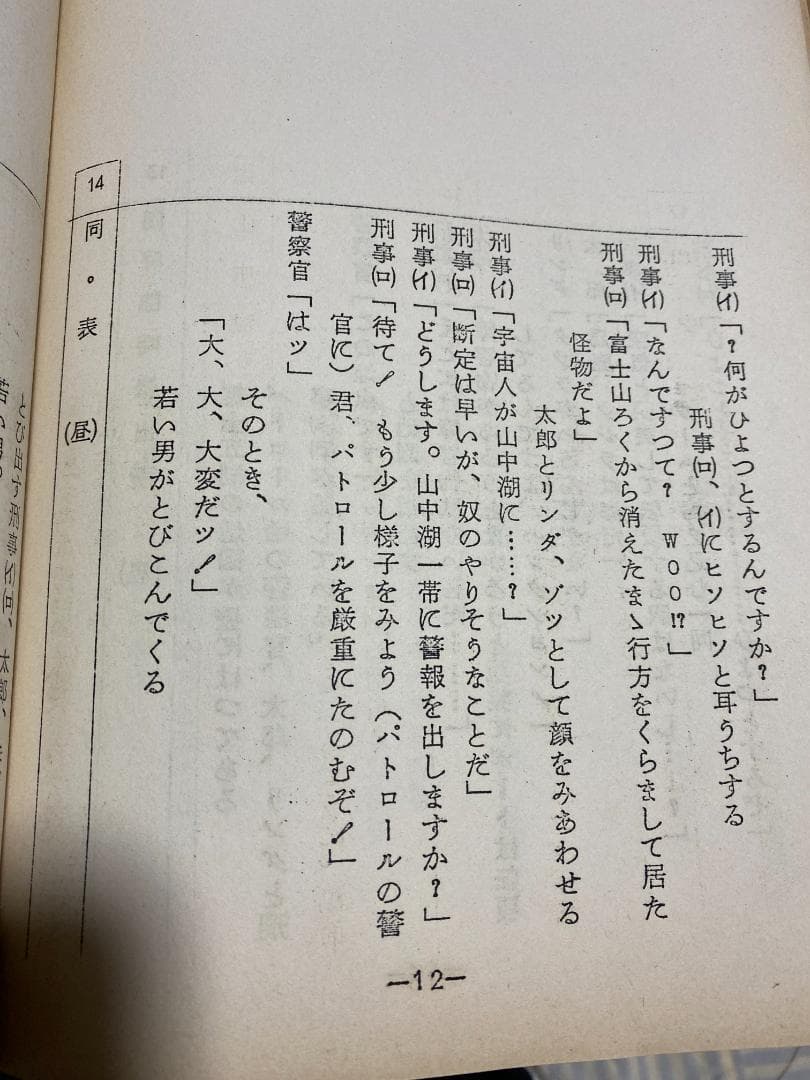 刑事(イ)「?何がひよつとするんですか?」
刑事(ロ)、(イ)にヒソヒソと耳うちする
刑事(イ)「なんですつて? WOO!?」
刑事(ロ)「富士山ろくから消えたまゝ行方をくらまして居た
怪物だよ」
太郎とリンダ、ゾッとして顔をみあわせる
刑事(イ)「宇宙人が山中湖に……?」
刑事(ロ)「断定は早いが、奴のやりそうなことだ」
刑事(イ)「どうします。山中湖一帯に警報を出しますか?」
刑事(ロ)「待て! もう少し様子をみよう(パトロールの警
官に)君、パトロールを厳重にたのむぞ!」
警察官「はッ」
そのとき、
「大、大、大変だッ!」
若い男がとびこんでくる
14 同。表 (昼)
とび出す刑事(イ)(ロ)、太郎、
若い男
—12—